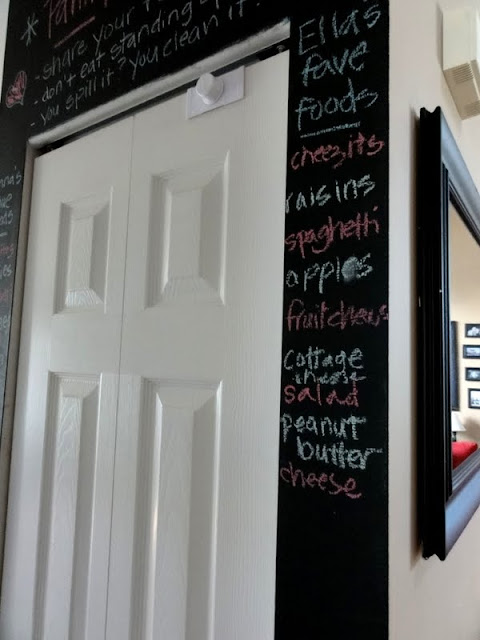 - share your
- don't eat standing
- you spill it? you clean it.
Ella's
fave
foods
cheezits
raisins
spaghetti
apples
fruit chews
cottage
cheese
salad
peanut
butter
cheese